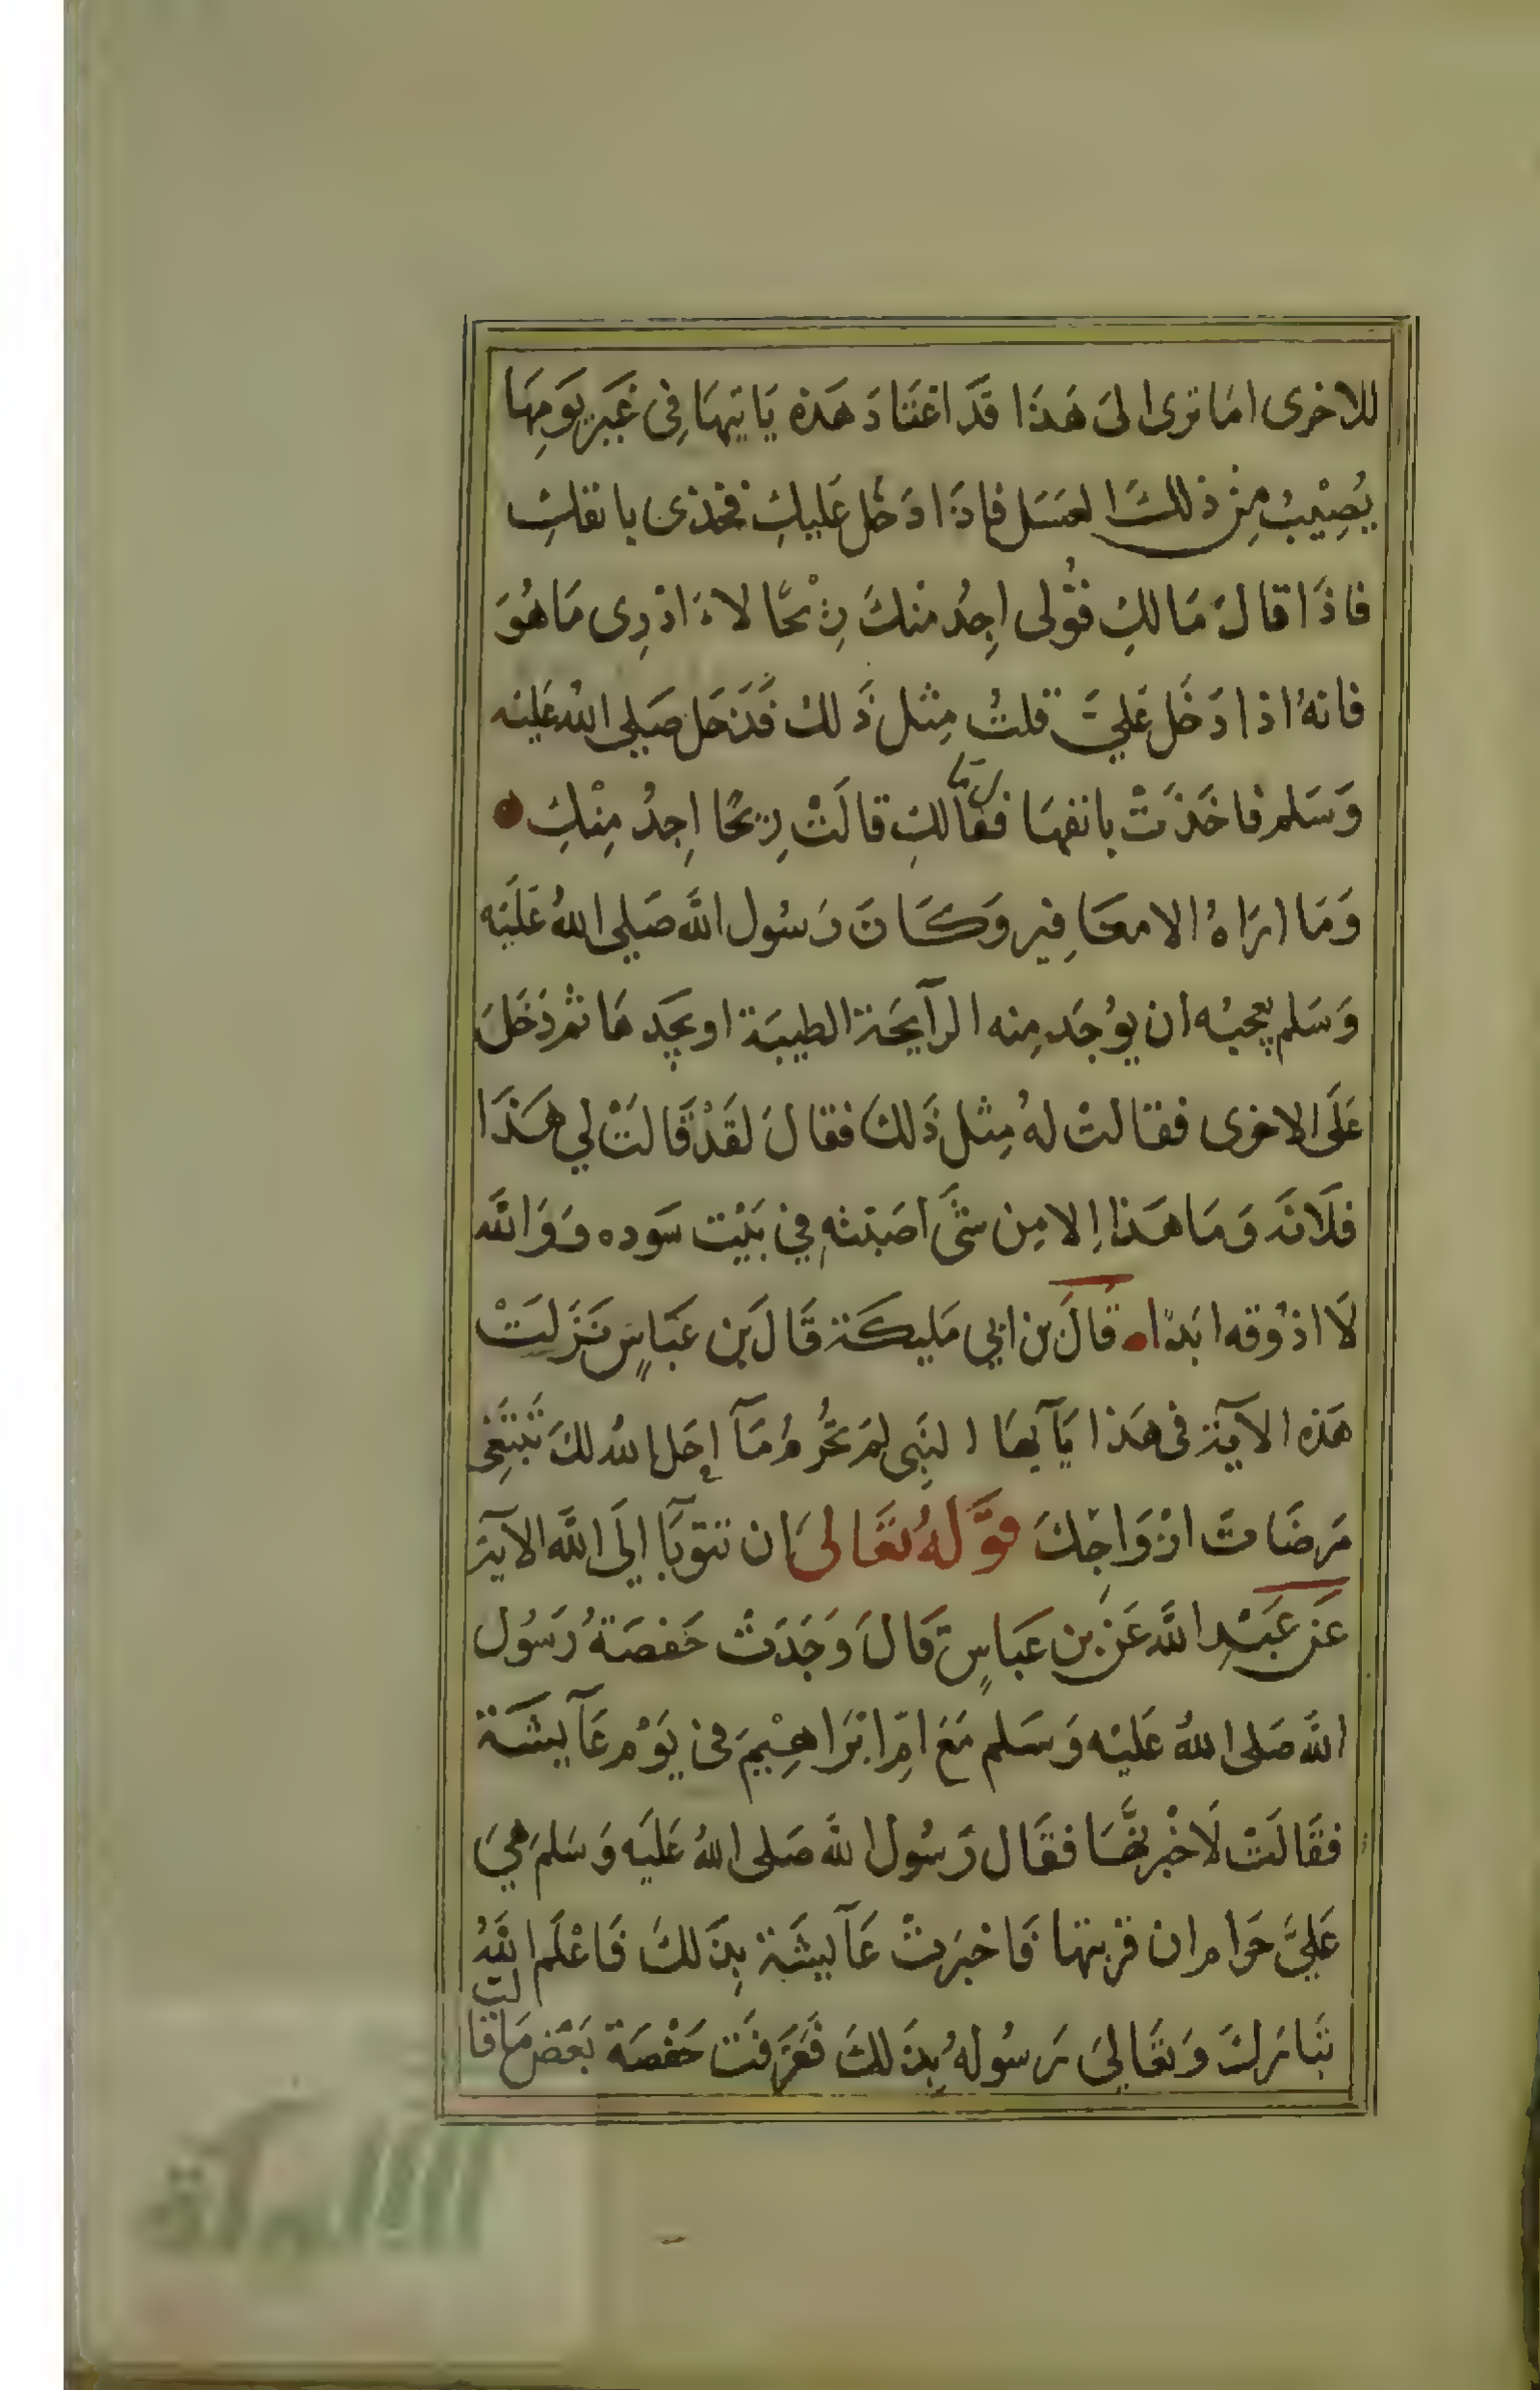 للاخرى اما ترى الى هَذَا قَد اعْتَادَ هَذه يَاتيهَا فِى غَير يَومِهَا
يُصِيْبُ مِن ذلكَ العسَل فاذَا دَخَل عَليكِ فخذى بانفكِ
فاذَا قالَ مَا لكِ فقُولى اجِدُ منْكَ رِيْحًا لا ادْرِى مَا هُوَ
فانهُ اذا دَخَل عَليَّ قلتُ مِثل ذَلك فَدَخَل صَلى اللهُ عَليه
وَسَلم فاخَذَتْ بانفهَا فقال مَا لكِ قالَتْ رِيحًا اجِدُ مِنْكِ
وَمَا ارَاهُ الا مغَافِير وَكَانَ رَسُول اللَّه صَلى اللهُ عَلَيْه
وَسَلم يعجبُه ان يوُجَد مِنه الرآيحَة الطيبَة او يجدهَا ثم دَخَلَ
عَلَى الاخرى فقالتْ لهُ مِثل ذَلكَ فقالَ لقَدْ قَالَتْ لي هَذَا
فلَانَه وَمَا هَذا اِلا مِن شَىَّ اصَبتُهِ فِي بَيْت سَوده وَوَاللَّه
لَا اذوُقه ابَدًا قَالَ بن ابي مَليكَة قَالَ بن عَبَاسٍ نَزَلَتْ
هَذه الآيَة فى هَذا يَآيهَا النَبِى لِمَ تحُرمُ مَآ احَل اللهُ لكَ تَبْتَغِى
مَرضَاتَ ازْوَاجِكَ قوَّلهُ تَعَالىَ ان تتوبَآ الَى اللَّه الآيَة
عَن عَبْدِ اللَّه عَن بن عَبَاسٍ قَالَ وَجَدَتْ حَفصَةُ رَسُول
اللَّه صَلى اللهُ عَليْه وَسَلم مَعَ امِّ ابْرَاهِيْمَ فى يَوْم عَآيشَة
فقَالَتْ لَاخْبِرنهَّا فقَال رَسُول اللَّه صَلى اللهُ عَليَه وَسَلمَ هِيَ
عَليَّ حَرَام ان قربتهَا فَاخبَرتْ عَآيشَة بِذَلكَ فَاعْلَم اللَّهُ
تَبَارَكَ وَتعَالىَ رَسُولهُ بِذَلكَ فَعَرَفَت حَفْصَة بَعْض مَا قالت